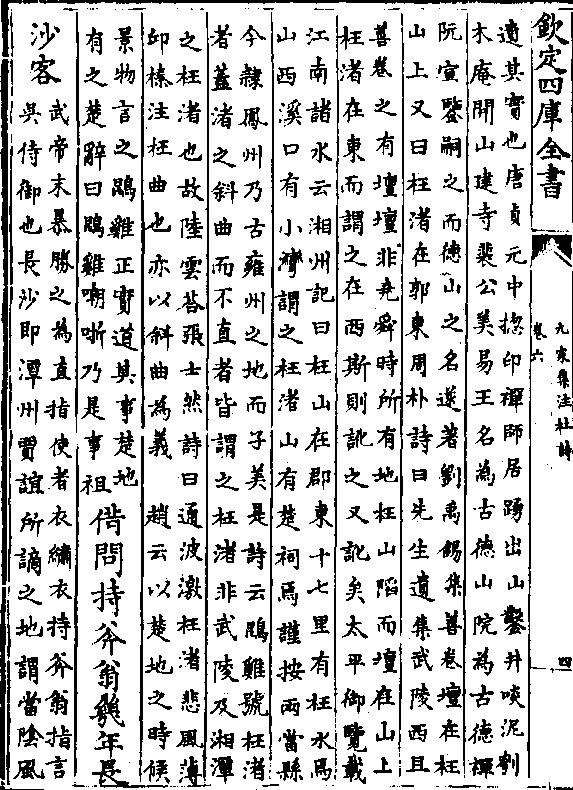 欽定四庫全書
九家集注杜詩
卷六
四
適其實也唐貞元中揔印禪師居踴出山鑿井啖泥剗
木庵開山建寺裴公美易王名為古德山院為古德禪
阮宣鑒嗣之而德山之名遂著劉禹錫集善卷壇在枉
山上又曰枉渚在郭東周朴詩曰先生遺集武陵西且
善卷之有壇壇非堯舜時所有地枉山陷而壇在山上
枉渚在東而謂之在西斯則訛之又訛矣太平御覽載
江南諸水云湘州記曰枉山在郡東十七里有枉水焉
山西溪口有小灣謂之枉渚山有楚祠焉謹按兩當縣
今隸鳳州乃古雍州之地而子美是詩云鵾雞號枉渚
者蓋渚之斜曲而不直者皆謂之枉渚非武陵及湘潭
之枉渚也故陸雲荅張士然詩曰通波激枉渚悲風薄
卭榛注枉曲也亦以斜曲為義　趙云以楚地之時候
景物言之鵾雞正實道其事楚地
有之楚辭曰鵾雞啁哳乃是事祖
借問持斧翁幾年長
沙客
武帝末暴勝之為直指使者衣繡衣持斧翁指言
吳侍御也長沙即潭州賈誼所謫之地謂當陰風